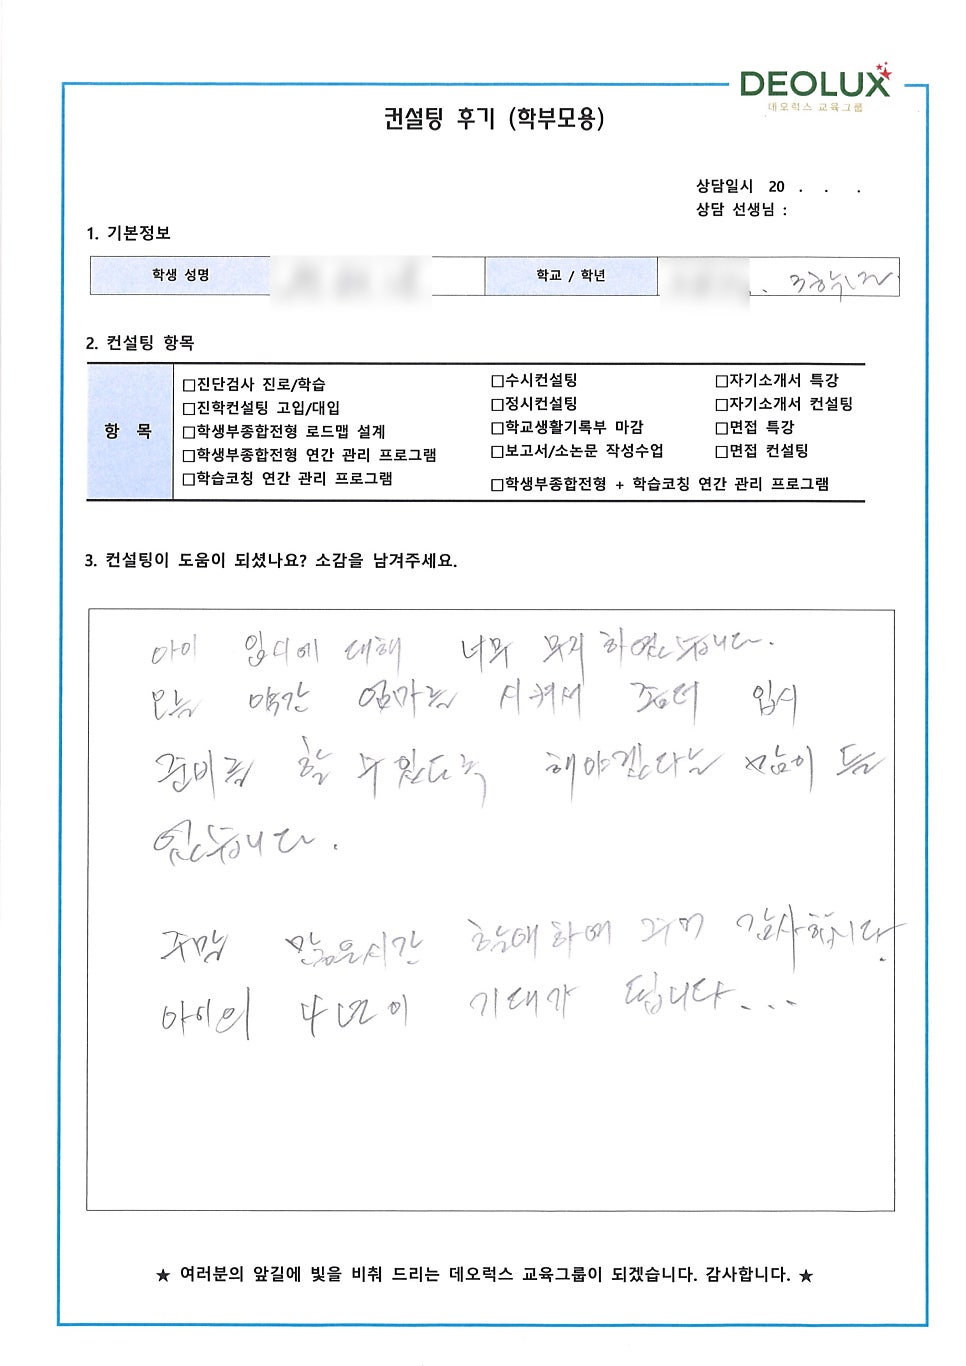 DEOLUX
데오럭스 교육그룹
컨설팅 후기 (학부모용)
상담일시 20 . . .
상담 선생님 :
1. 기본정보
학생 성명
학교 / 학년
3학년
2. 컨설팅 항목
항 목
□진단검사 진로/학습
□진학컨설팅 고입/대입
□학생부종합전형 로드맵 설계
□학생부종합전형 연간 관리 프로그램
□학습코칭 연간 관리 프로그램
□수시컨설팅
□정시컨설팅
□학교생활기록부 마감
□보고서/소논문 작성수업
□학생부종합전형 + 학습코칭 연간 관리 프로그램
□자기소개서 특강
□자기소개서 컨설팅
□면접 특강
□면접 컨설팅
3. 컨설팅이 도움이 되셨나요? 소감을 남겨주세요.
아이 입시에 대해 너무 무지 하였습니다.
오늘 약간 엄마를 시켜서 좀더 입시
준비를 할 수 있도록 해야겠다는 맘이 들
었습니다.
주말 많은시간 할애하여 주어 감사합니다.
아이의 4년이 기대가 됩니다...
★ 여러분의 앞길에 빛을 비춰 드리는 데오럭스 교육그룹이 되겠습니다. 감사합니다. ★